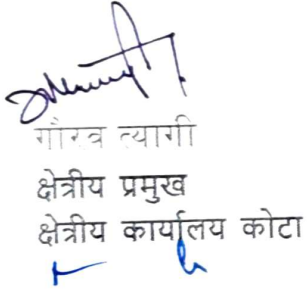 गौरव त्यागी
क्षेत्रीय प्रमुख
क्षेत्रीय कार्यालय कोटा